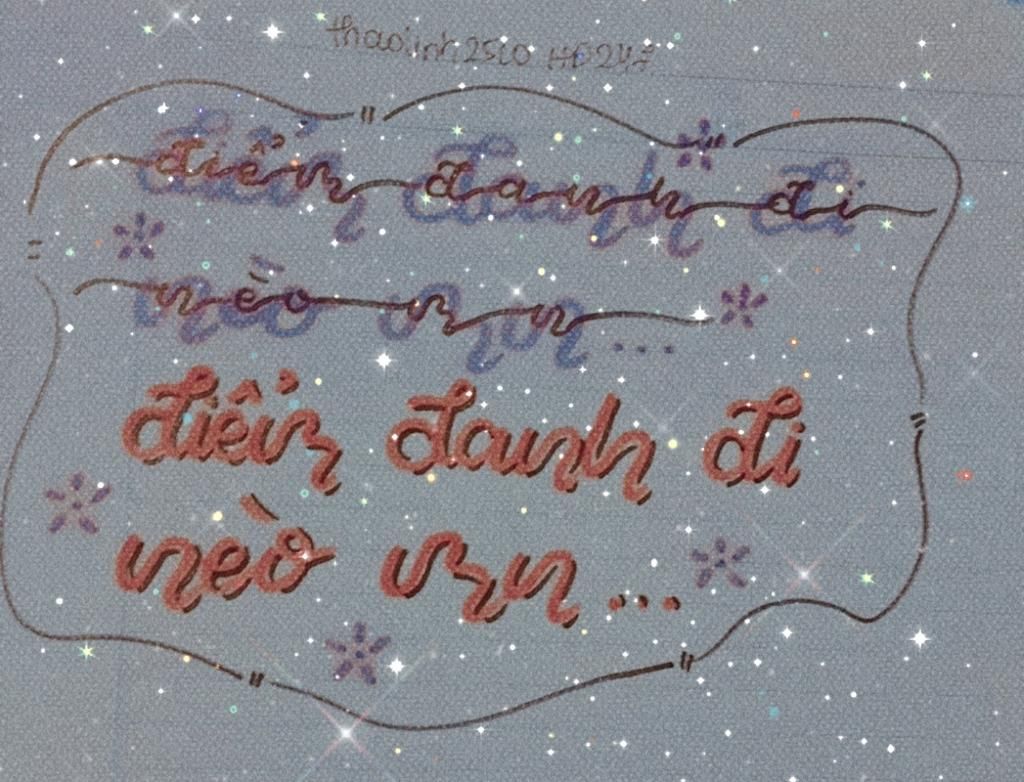 thaolinh2510 HĐ247
điểm danh đi
nèo mn...
điểm danh đi
nèo mn...